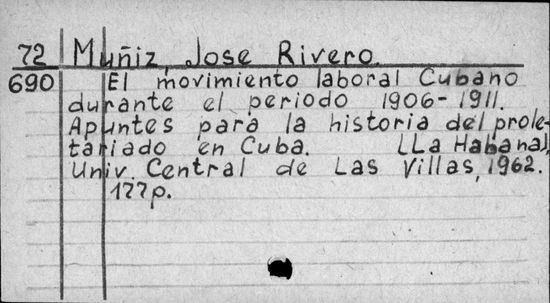 72 Muñiz, Jose Rivero.
690 El movimiento laboral Cubano
durante el periodo 1906-1911.
Apuntes para la historia del prole-
tariado en Cuba. [La Habana],
Univ. Central de Las Villas, 1962.
177p.